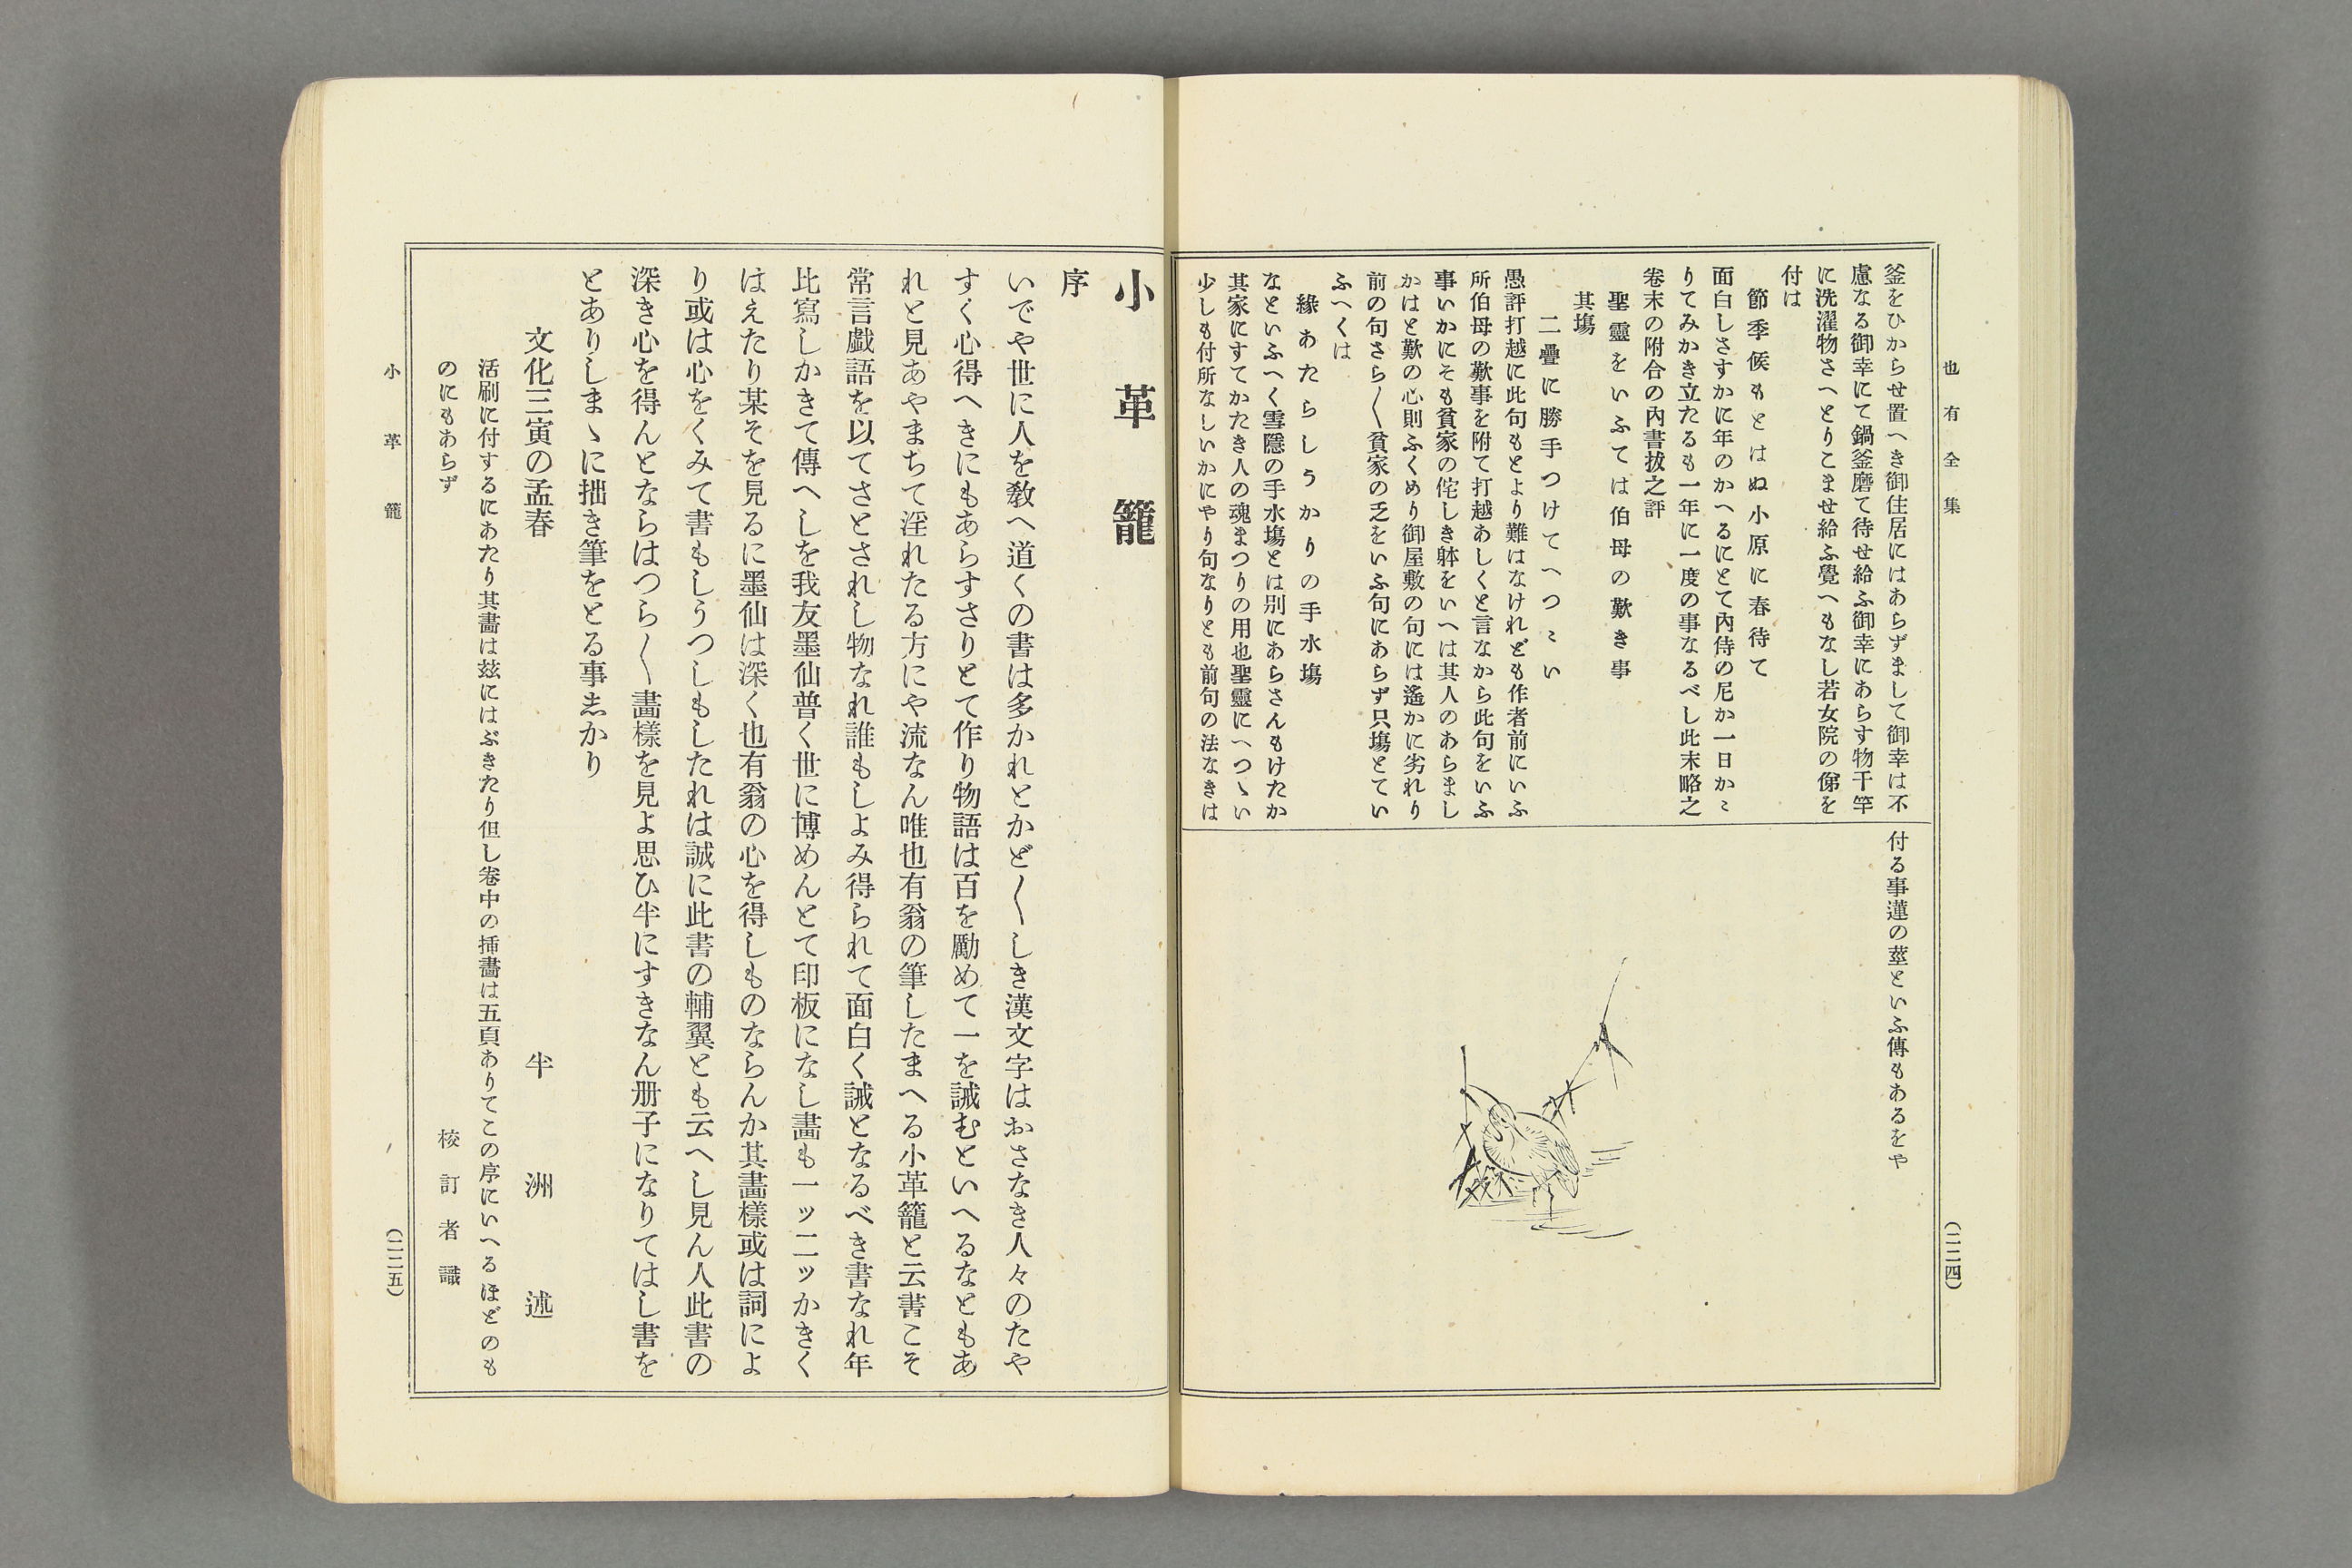 也有全集
(二二四)
釜をひからせ置へき御住居にはあらずまして御幸は不
慮なる御幸にて鍋釜磨て待せ給ふ御幸にあらす物干竿
に洗濯物さへとりこませ給ふ覺へもなし若女院の俤を
付は
節季候もとはぬ小原に春待て
面白しさすかに年のかへるにとて內侍の尼か一日かゝ
りてみかき立たるも一年に一度の事なるべし此末略之
卷末の附合の內書拔之評
聖靈をいふては伯母の歎き事
其塲
二疊に勝手つけてへつゝい
愚評打越に此句もとより難はなけれども作者前にいふ
所伯母の歎事を附て打越あしくと言なから此句をいふ
事いかにそも貧家の侘しき躰をいへは其人のあらまし
かはと歎の心則ふくめり御屋敷の句には遙かに劣れり
前の句さら〱貧家の乏をいふ句にあらず只塲とてい
ふへくは
緣あたらしうかりの手水塲
なといふへく雪隱の手水塲とは別にあらさんもけたか
其家にすてかたき人の魂まつりの用也聖靈にへつゝい
少しも付所なしいかにやり句なりとも前句の法なきは
付る事蓮の莖といふ傳もあるをや
小革籠
序
いでや世に人を敎へ道くの書は多かれとかど〱しき漢文字はおさなき人々のたや
すく心得へきにもあらすさりとて作り物語は百を勵めて一を誡むといへるなともあ
れと見あやまちて淫れたる方にや流なん唯也有翁の筆したまへる小革籠と云書こそ
常言戯語を以てさとされし物なれ誰もしよみ得られて面白く誡となるべき書なれ年
比寫しかきて傳へしを我友墨仙普く世に博めんとて印板になし畵も一ッ二ッかきく
はえたり某そを見るに墨仙は深く也有翁の心を得しものならんか其畵樣或は詞によ
り或は心をくみて書もしうつしもしたれは誠に此書の輔翼とも云へし見ん人此書の
深き心を得んとならはつら〱畵樣を見よ思ひ半にすきなん册子になりてはし書を
とありしまゝに拙き筆をとる事志かり
文化三寅の孟春
半洲述
活刷に付するにあたり其畵は玆にはぶきたり但し卷中の揷畵は五頁ありてこの序にいへるほどのも
のにもあらず
校訂者識
小革籠
(二二五)